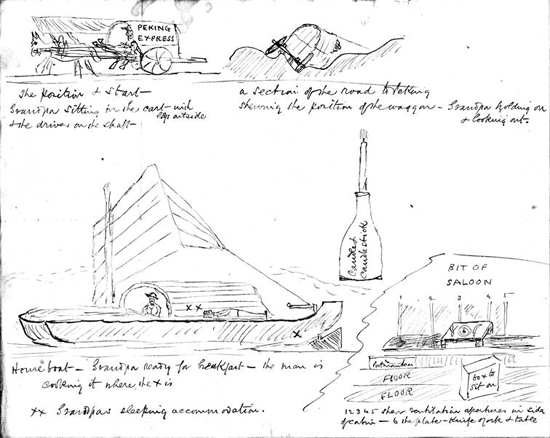 PEKING
EXPRESS
The position & start—
Grandpa sitting in the cart with
legs outside
& the driver on the shaft—
a section of the road to Peking
shewing the position of the waggon— Grandpa holding on
& looking out.
Candle &
Candlestick
BIT OF
SALOON
1 2 3 4 5
FLOOR
FLOOR
box to
sit on
House boat— Grandpa ready for breakfast— the man is
cooking it where the x is
xx Grandpa's sleeping accommodation.
x x
x
1 2 3 4 5 shew ventilation apertures in side
of cabin— 6 the plate— Knife & fork & table